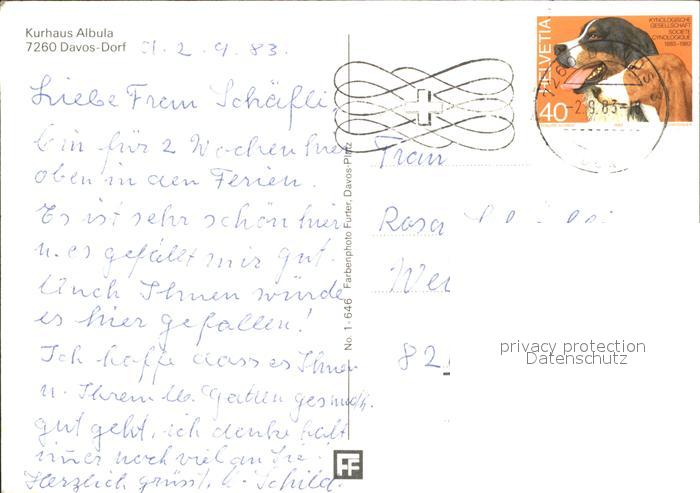 Kurhaus Albula
7260 Davos-Dorf
2.9.83.
Liebe Frau Schäfli,
bin für 2 Wochen hier
oben in den Ferien.
Es ist sehr schön hier
u. es gefällt mir gut.
Auch Ihnen würde
es hier gefallen!
Ich hoffe dass es Ihnen
u. Ihrem lb. Gatten gesundh.
gut geht, ich denke halt
immer noch viel an Sie.
Herzlich grüsst, Schild.
No. 1-646 Farbenphoto Furter, Davos-Platz
FF
HELVETIA
40
KYNOLOGISCHE
GESELLSCHAFT
SOCIETE
CYNOLOGIQUE
1883-1983
-2.9.83-
Frau
Rosa
82
privacy protection
Datenschutz